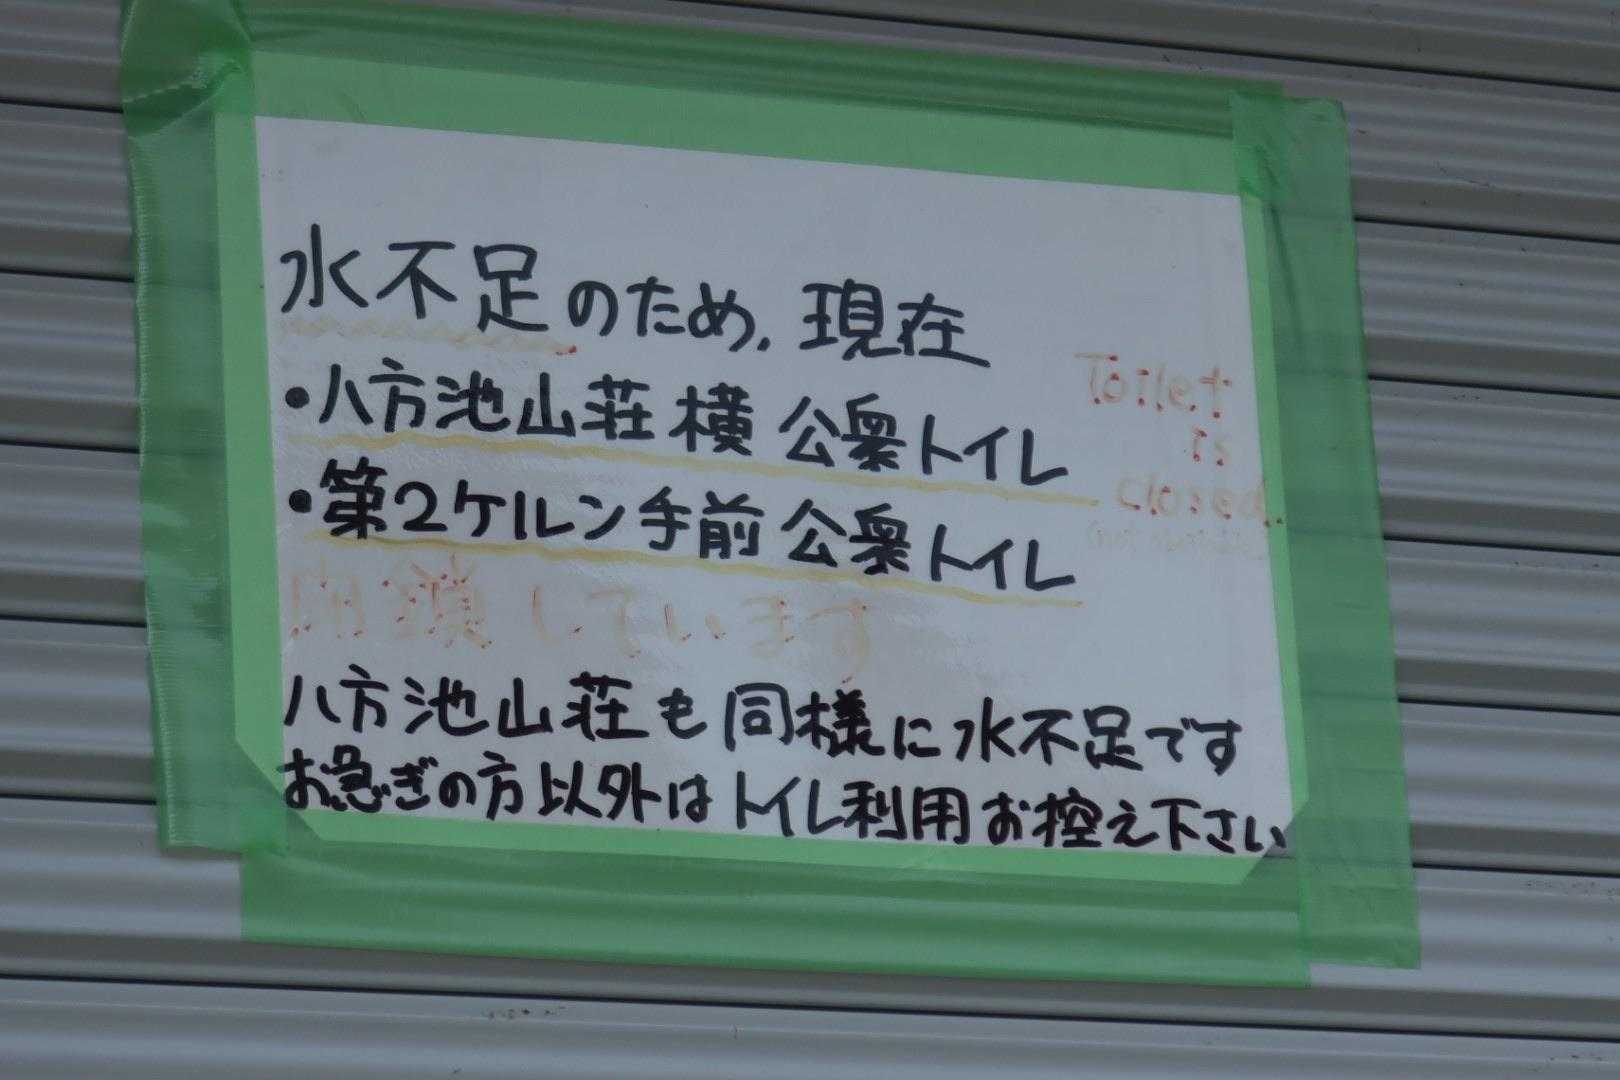 水不足のため、現在
・八方池山荘横 公衆トイレ
・第2ケルン手前 公衆トイレ
Toilet
is
closed.
閉鎖しています
八方池山荘も同様に水不足です
お急ぎの方以外はトイレ利用お控え下さい